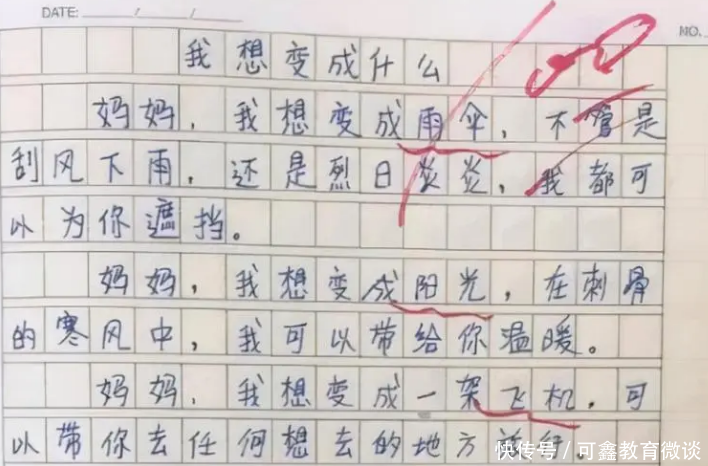 DATE: / /
NO.
我想变成什么
100
妈妈，我想变成雨伞，不管是
刮风下雨，还是烈日炎炎，我都可
以为你遮挡。
妈妈，我想变成阳光，在刺骨
的寒风中，我可以带给你温暖。
妈妈，我想变成一架飞机，可
以带你去任何想去的地方
快传号／可鑫教育微谈